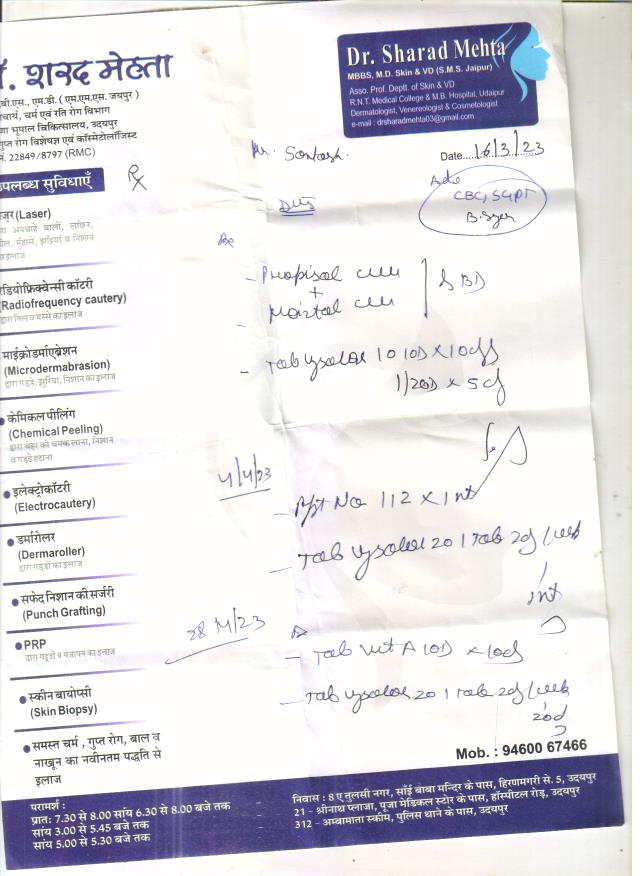 . शरद मेहता
बी.एस., एम.डी. ( एम.एम.एस. जयपुर )
चार्य, चर्म एवं रति रोग विभाग
णा भूपाल चिकित्सालय, उदयपुर
गुप्त रोग विशेषज्ञ एवं कॉस्मेटोलॉजिस्ट
नं. 22849/8797 (RMC)
Dr. Sharad Mehta
MBBS, M.D. Skin & VD (S.M.S. Jaipur)
Asso. Prof. Deptt. of Skin & VD
R.N.T. Medical College & M.B. Hospital, Udaipur
Dermatologist, Venereologist & Cosmetologist
e-mail : drsharadmehta03@gmail.com
Mr. Santosh
Date 16/3/23
उपलब्ध सुविधाएँ
Rx
Adv
CBC, SGPT
B. Sugar
(Laser)
अनचाहे बालों, लांछन,
मुंहासे, झाँइयां व निशान
इलाज
Rx
रेडियोफ्रिक्वेन्सी कॉटरी
(Radiofrequency cautery)
द्वारा तिल व मस्से का इलाज
+
BD
माईक्रोडर्माएब्रेशन
(Microdermabrasion)
द्वारा गड्डे, झुर्रियां, निशान का इलाज
Tab Wysolone 10 1OD x 10d
1/2OD x 5d
केमिकल पीलिंग
(Chemical Peeling)
द्वारा चेहरे की चमक लाना, निशान
व गड्ढे हटाना
4/4/23
इलेक्ट्रोकॉटरी
(Electrocautery)
No 112 x 1
डर्मारोलर
(Dermaroller)
द्वारा गड्ढों का इलाज
Tab Wysolone 20 1 Tab 2d/week
सफेद निशान की सर्जरी
(Punch Grafting)
28/4/23
PRP
द्वारा गड्ढों व गंजापन का इलाज
Tab Vit A 1OD x 10d
स्कीन बायोप्सी
(Skin Biopsy)
Tab Wysolone 20 1 Tab 2d/week
20d
समस्त चर्म , गुप्त रोग, बाल व
नाखून का नवीनतम पद्धति से
इलाज
Mob. : 94600 67466
परामर्श :
प्रात: 7.30 से 8.00 सांय 6.30 से 8.00 बजे तक
सांय 3.00 से 5.45 बजे तक
सांय 5.00 से 5.30 बजे तक
निवास : 8 ए तुलसी नगर, साँई बाबा मन्दिर के पास, हिरणमगरी से. 5, उदयपुर
21 - श्रीनाथ प्लाजा, पूजा मेडिकल स्टोर के पास, हॉस्पीटल रोड़, उदयपुर
312 - अम्बामाता स्कीम, पुलिस थाने के पास, उदयपुर